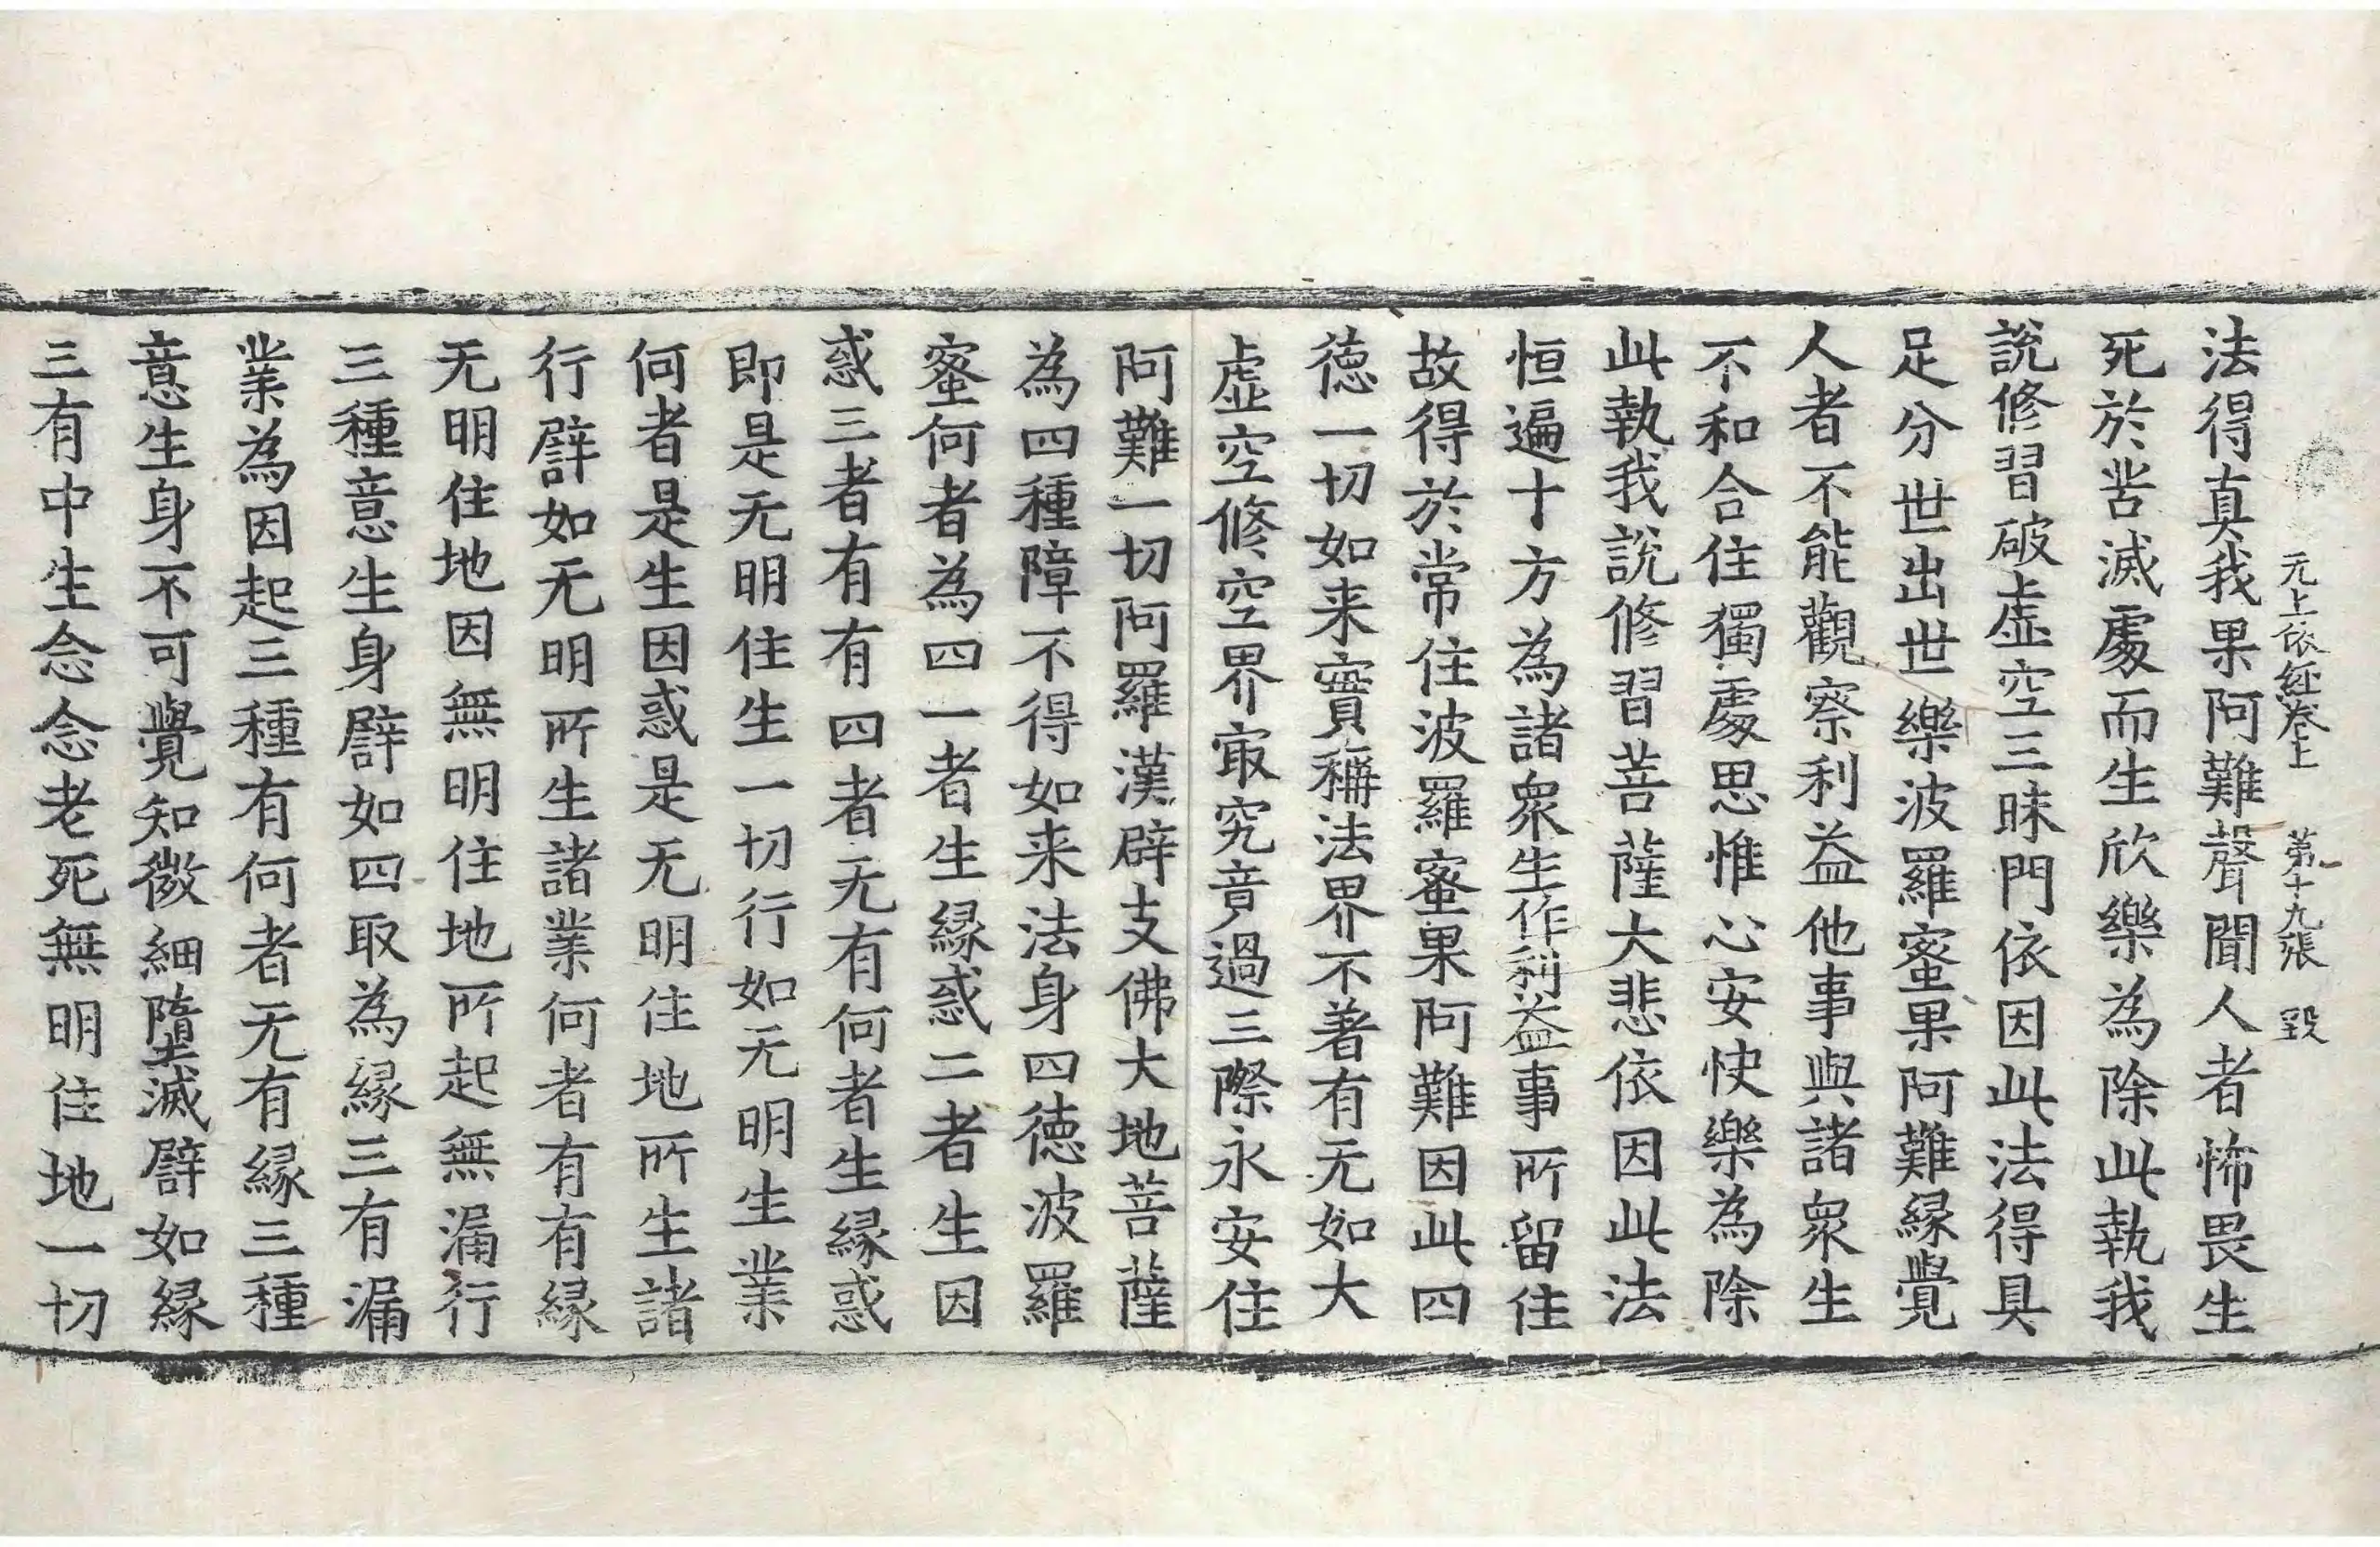 无上依経卷上　第十九張　毀
法得真我果阿難聲聞人者怖畏生
死於苦滅處而生欣樂為除此執我
說修習破虛空三昧門依因此法得具
足分世出世樂波羅蜜果阿難縁覺
人者不能觀察利益他事與諸衆生
不和合住獨處思惟心安快樂為除
此執我說修習菩薩大悲依因此法
恒遍十方為諸衆生作利益事所留住
故得於常住波羅蜜果阿難因此四
徳一切如来實稱法界不著有无如大
虛空修空界㝡究竟過三際永安住
阿難一切阿羅漢辟支佛大地菩薩
為四種障不得如来法身四徳波羅
蜜何者為四一者生縁惑二者生因
惑三者有有四者无有何者生縁惑
即是无明住生一切行如无明生業
何者是生因惑是无明住地所生諸
行譬如无明所生諸業何者有有縁
无明住地因無明住地所起無漏行
三種意生身譬如四取為縁三有漏
業為因起三種有何者无有縁三種
意生身不可覺知微細墮滅譬如縁
三有中生念念老死無明住地一切